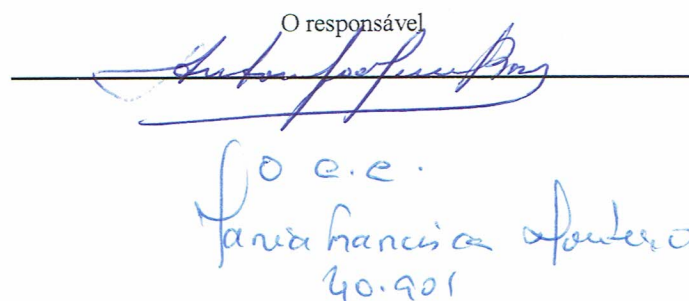 O responsável
O C.C.
Maria Francisca Monteiro
40.901